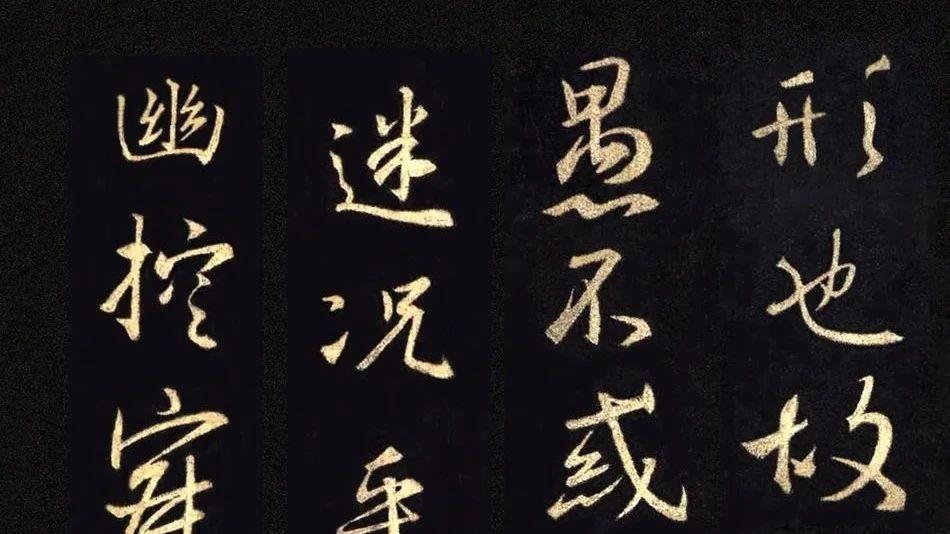 形也故
愚不惑
迷况乎
幽控寂